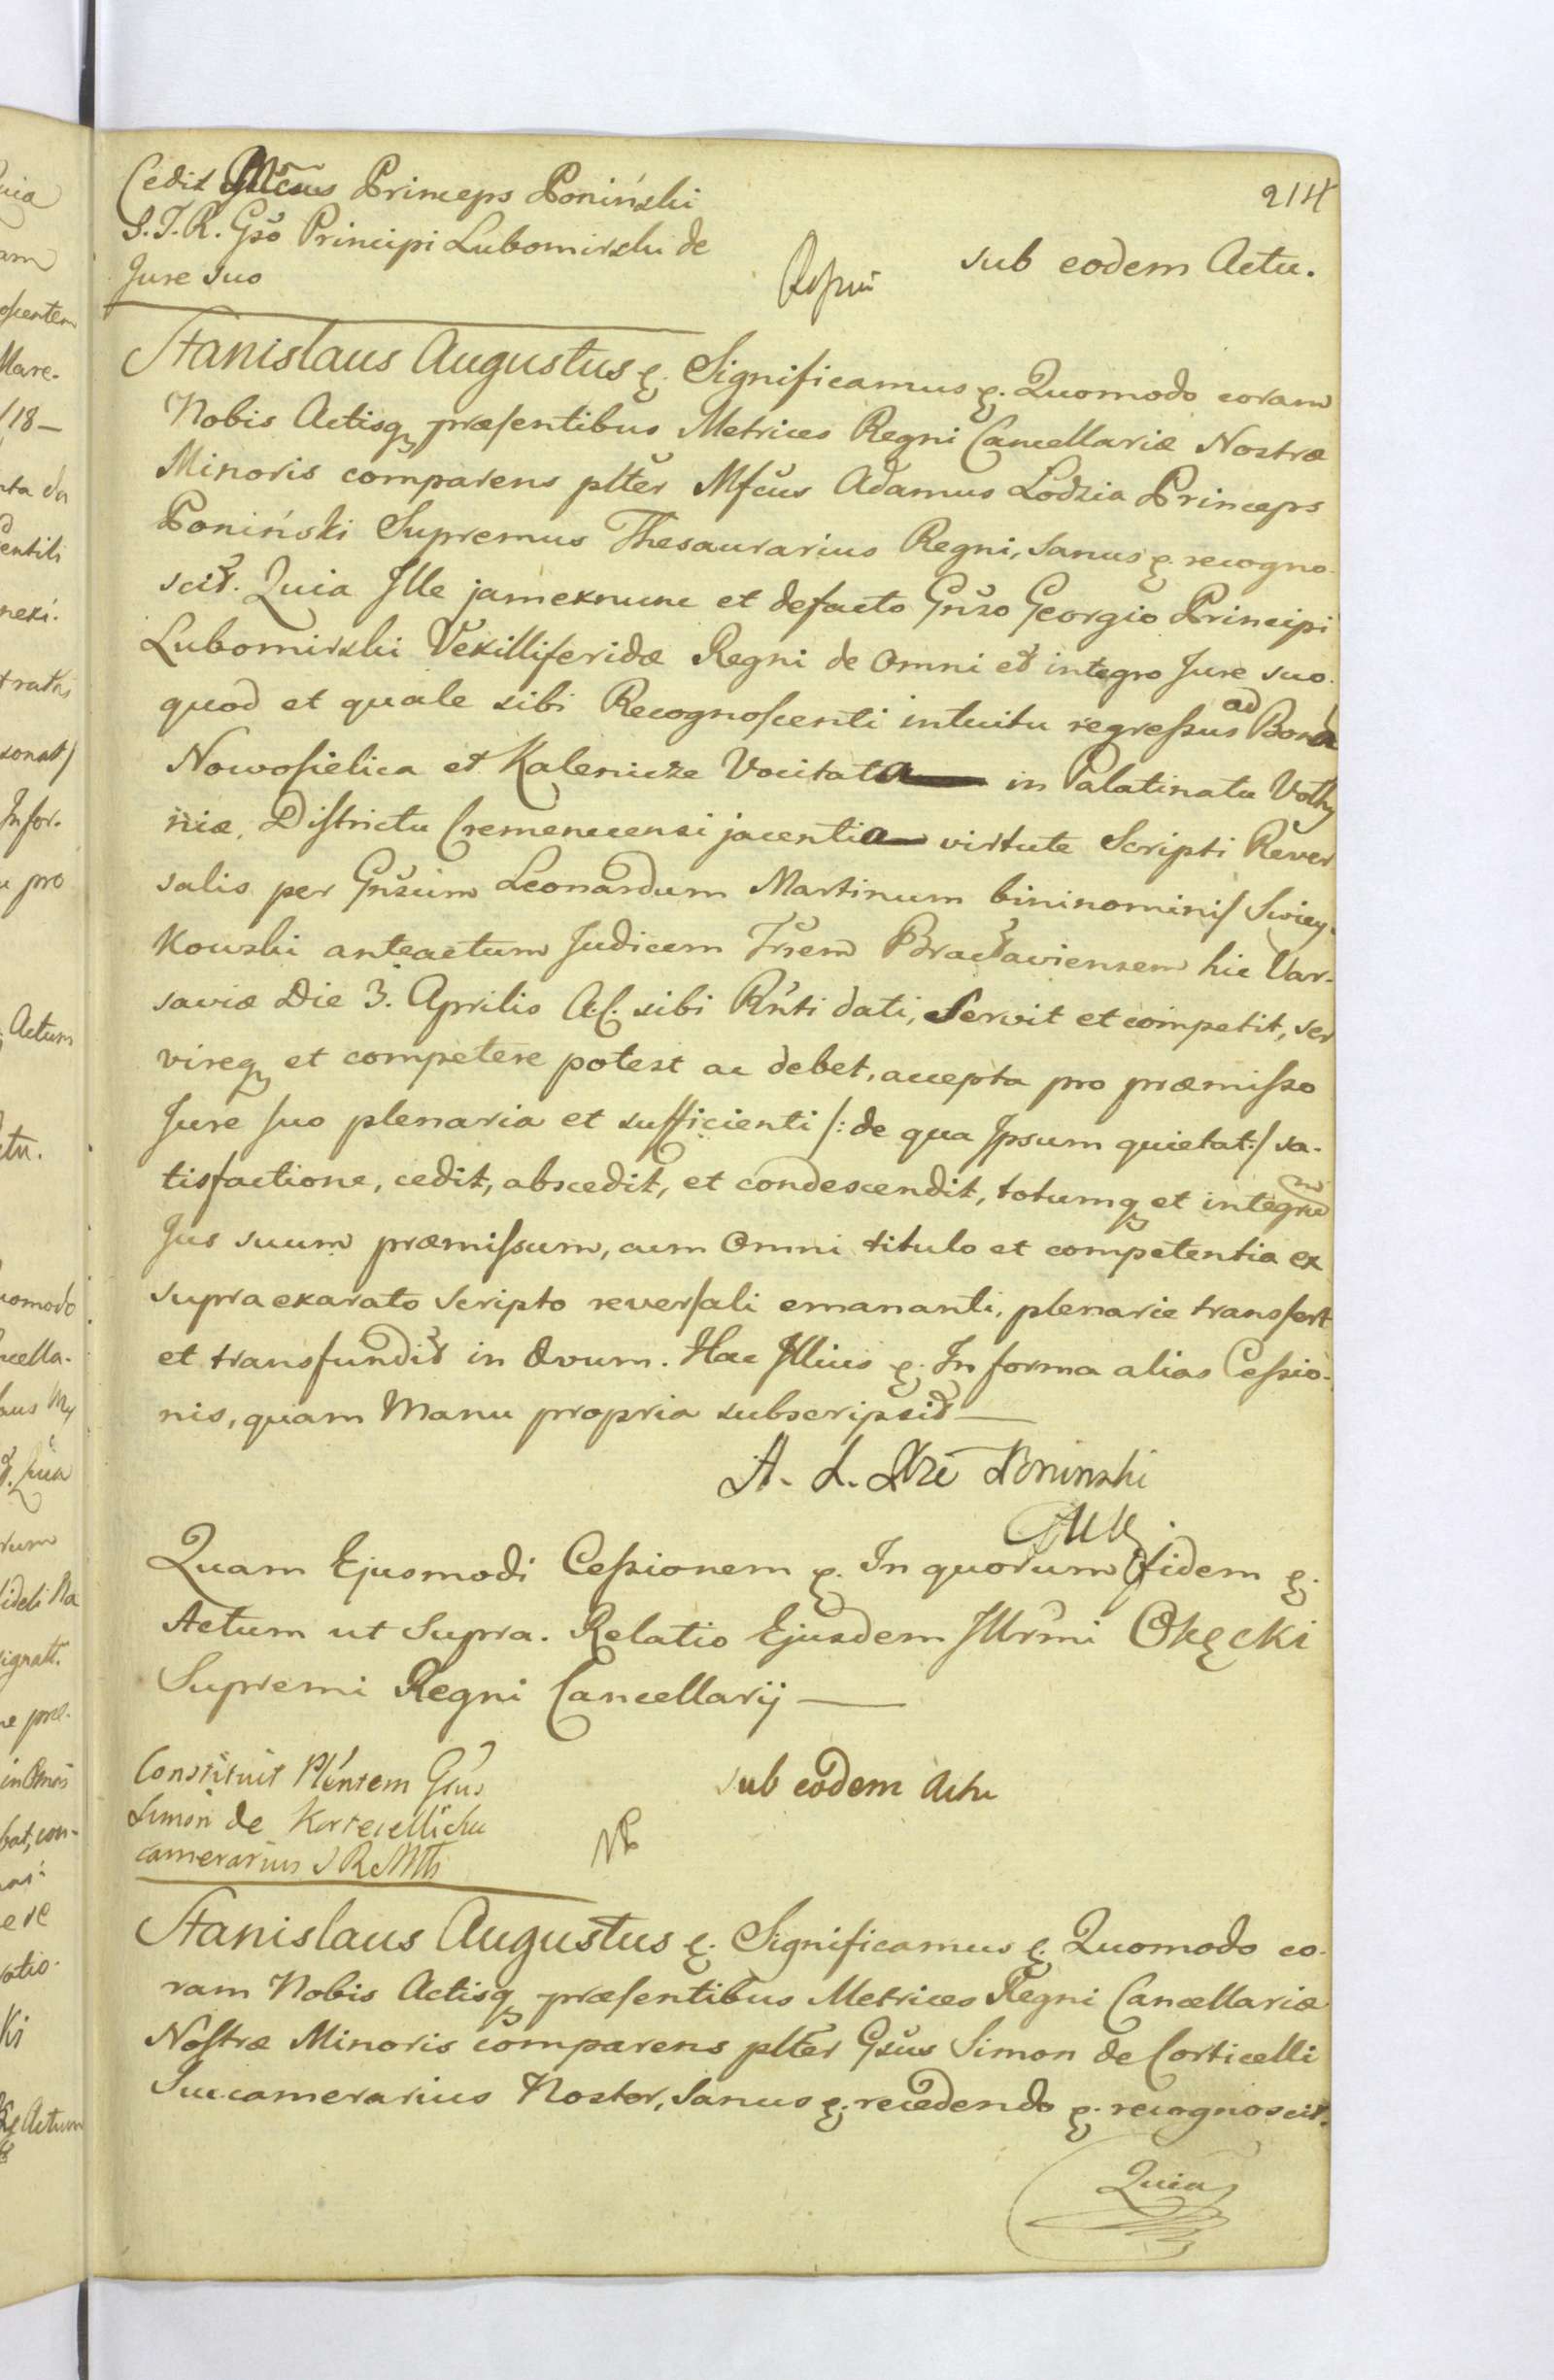 214
Cedit Mfcus Princeps Poniński
S.T.R. Gso Principi Lubomirski de
Jure suo
sub eodem Actu.
Stanislaus Augustus &. Significamus &. Quomodo coram
Nobis Actisq præsentibus Metrices Regni Cancellariæ Nostræ
Minoris comparens plter Mfcus Adamus Lodzia Princeps
Poniński Supremus Thesaurarius Regni, sanus &. recogno-
scit. Quia Ille jamexnunc et defacto Gnso Georgio Principi
Lubomirski Vexilliferidæ Regni de Omni et integro Jure suo
quod et quale sibi Recognoscenti intuitu regressus ad Bona
Nowosielica et Kalenicze Vocitata in Palatinatu Volhy
niæ, Districtu Cremenecensi jacentia virtute Scripti Rever
salis per Gnsum Leonardum Martinum bininominis Swiey-
kowski anteactum Judicem Trrem Bracłaviensem hic Var-
saviæ Die 3. Aprilis A.C. sibi Rnti dati, servit et competit, ser
vireq et competere potest ac debet, accepta pro præmisso
Jure suo plenaria et sufficienti /: de qua Ipsum quietat :/ sa-
tisfactione, cedit, abscedit, et condescendit, totumq et integrum
Jus suum præmissum, cum Omni titulo et competentia ex
supra exarato scripto reversali emananti, plenarie transfert
et transfundit in Ævum. Hac Illius &. In forma alias Cessio-
nis, quam Manu propria subscripsit
A. L. Xże Poninski
Quam Ejusmodi Cessionem &. In quorum fidem &.
Actum ut supra. Relatio Ejusdem Illrmi Okęcki
Supremi Regni Cancellarij
Constituit Plentem Gsus
Simon de Korticelli
camerarius S R Mtis
sub eodem Actu
Stanislaus Augustus &. Significamus &. Quomodo co-
ram Nobis Actisq præsentibus Metrices Regni Cancellariæ
Nostræ Minoris comparens plter Gsus Simon de Corticelli
Succamerarius Noster, sanus &. recedendo &. recognoscit.
Quia